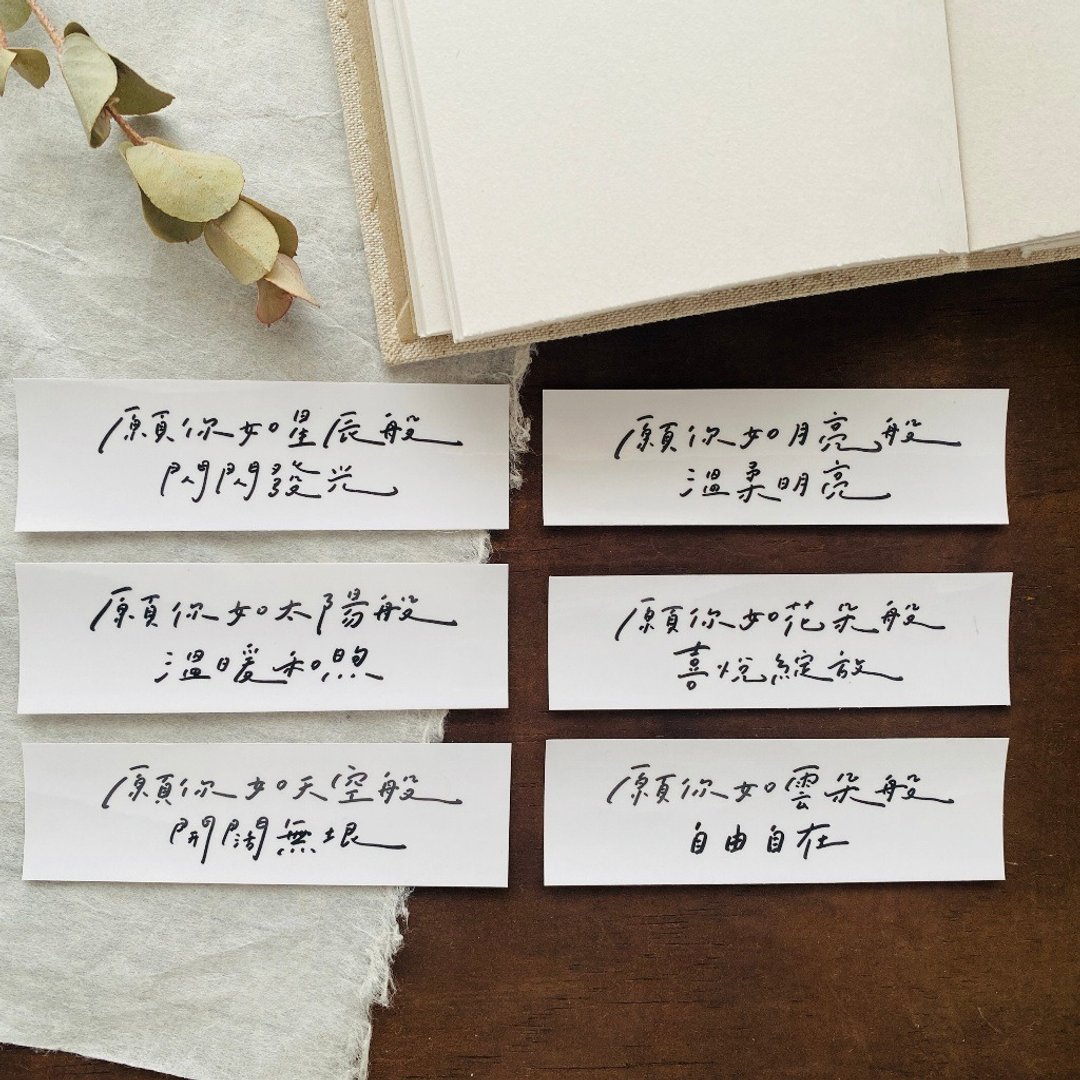 願你如星辰般
閃閃發光
願你如月亮般
溫柔明亮
願你如太陽般
溫暖和煦
願你如花朵般
喜悅綻放
願你如天空般
開闊無垠
願你如雲朵般
自由自在